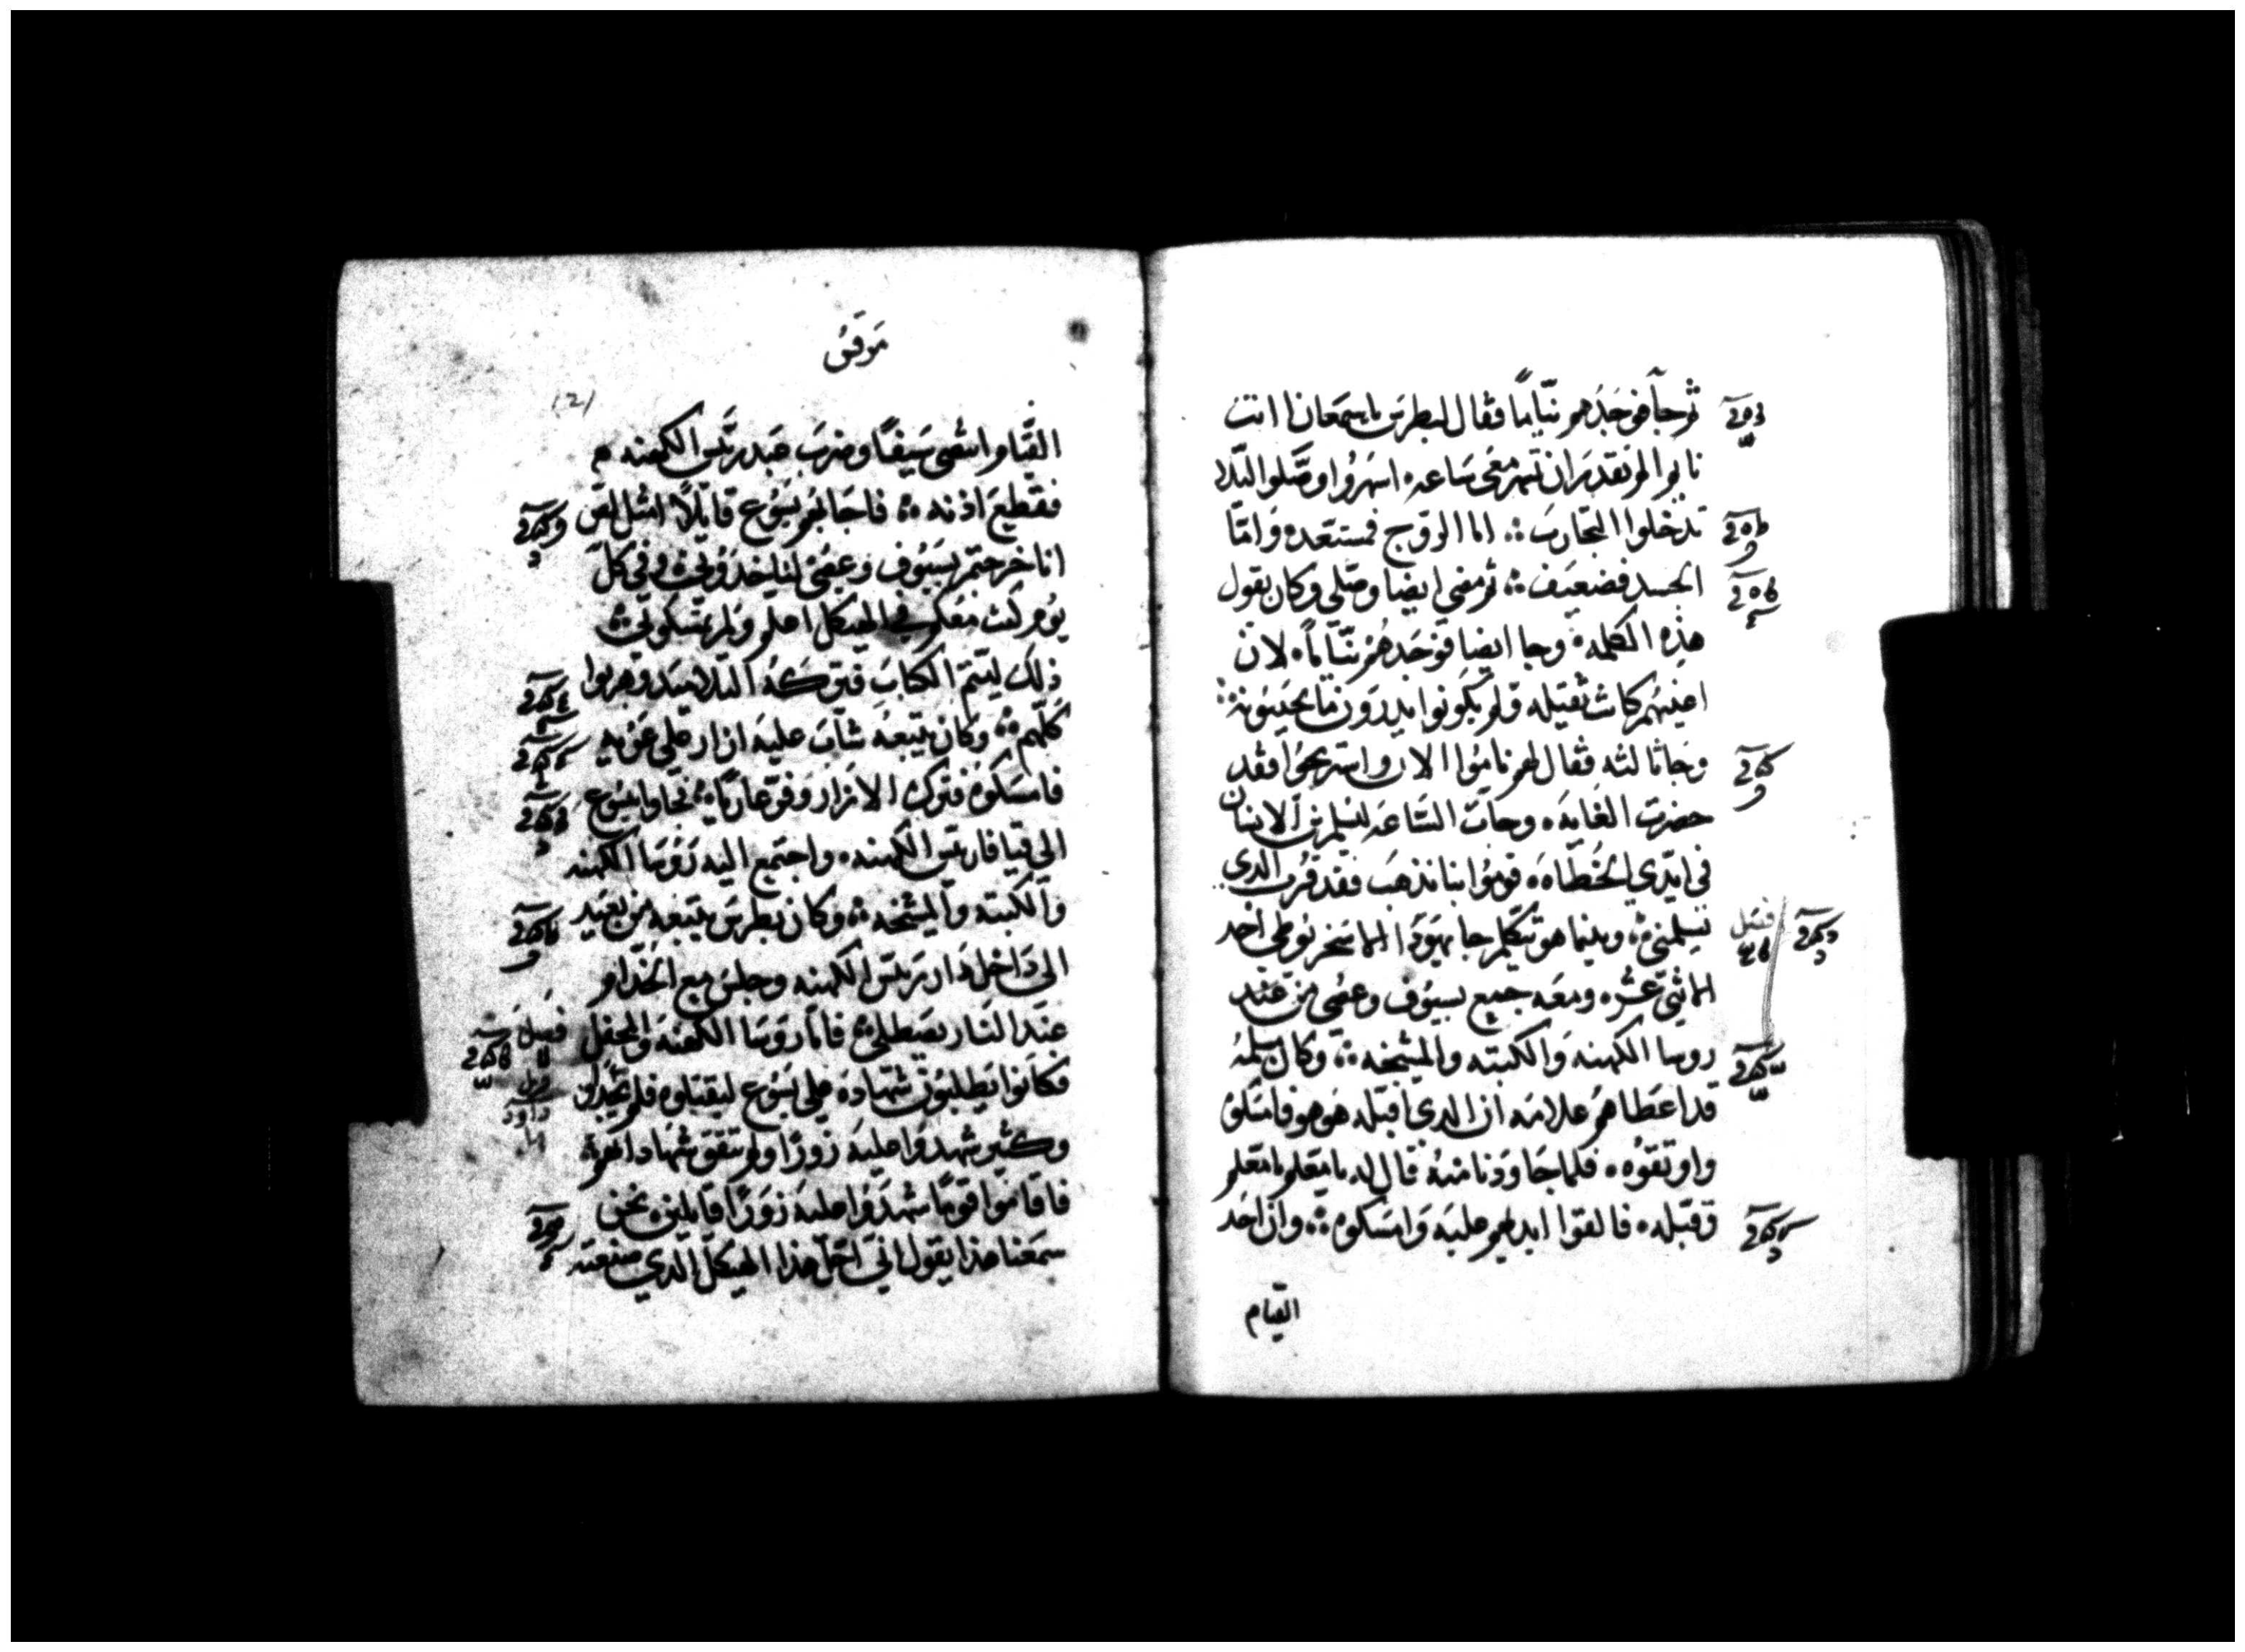 ثم جآ فوجدهم نيّامًا فقال لبطرس ياسمعان انت
نايم الم تقدر ان تسهر معي ساعه اسهروا وصلوا ليلا
تدخلوا التجارب ؞ اما الروح فمستعده وامّا
الجسد فضعيف ؞ ثم مضي ايضا وصلي وكان يقول
هذه الكلمه وجا ايضا فوجدهم نيّامًا لان
اعينهم كانت ثقيله ولم يكونوا يدرون ما يجيبونه
وجا ثالثه فقال لهم ناموا الان واستريحوا فقد
حضرت الغايه وجات الساعه ليسلم ابن الانسان
في ايدي الخطاه قوموا بنا نذهب فقد قرب الدي
يسلمني ؞ وبينما هو يتكلم جا يهودا الاسخريوطي احد
الاثني عشر ومعه جمع بسيوف وعصي من عند
روسا الكهنه والكتبه والمشيخه ؞ وكان مسلمه
قد اعطاهم علامه ان الدي اقبله هو هو فامسكوه
واوثقوه فلما جا ودنا منه قال له يامعلم يامعلم
وقبله فالقوا ايديهم عليه وامسكوه ؞ وان احد
القيام
فصل
مرقس
121
القيام انتضي سيفًا وضرب عبد ريّس الكهنه
فقطع اذنه ؞ فاجابهم يسوع قايلًا امثل لص
انا خرجتم بسيوف وعصي لتاخدوني وفي كل
يوم كنت معكم في الهيكل اعلم ولم تمسكوني
ذلك ليتم الكتاب فتركه التلاميد وهربوا
كلهم ؞ وكان يتبعه شاب عليه ازار علي عريه
فامسكوه فترك الازار وفر عاريًا فجاوا بيسوع
الي قيافا ريس الكهنه واجتمع اليه روسا الكهنه
والكتبه والمشيخه ؞ وكان بطرس يتبعه من بعيد
الي داخل دار ريس الكهنه وجلس مع الخدام
عند النار يصطلي ؞ فامّا روسا الكهنه والمحفل
فكانوا يطلبون شهاده علي يسوع ليقتلوه فلم يجدوا
وكثير شهدوا عليه زورًا ولم تتفق شهاداتهم
فاقاموا قومًا شهدوا عليه زورًا قايلين نحن
سمعنا هذا يقول اني احل هذا الهيكل الدي صنعته
فصل